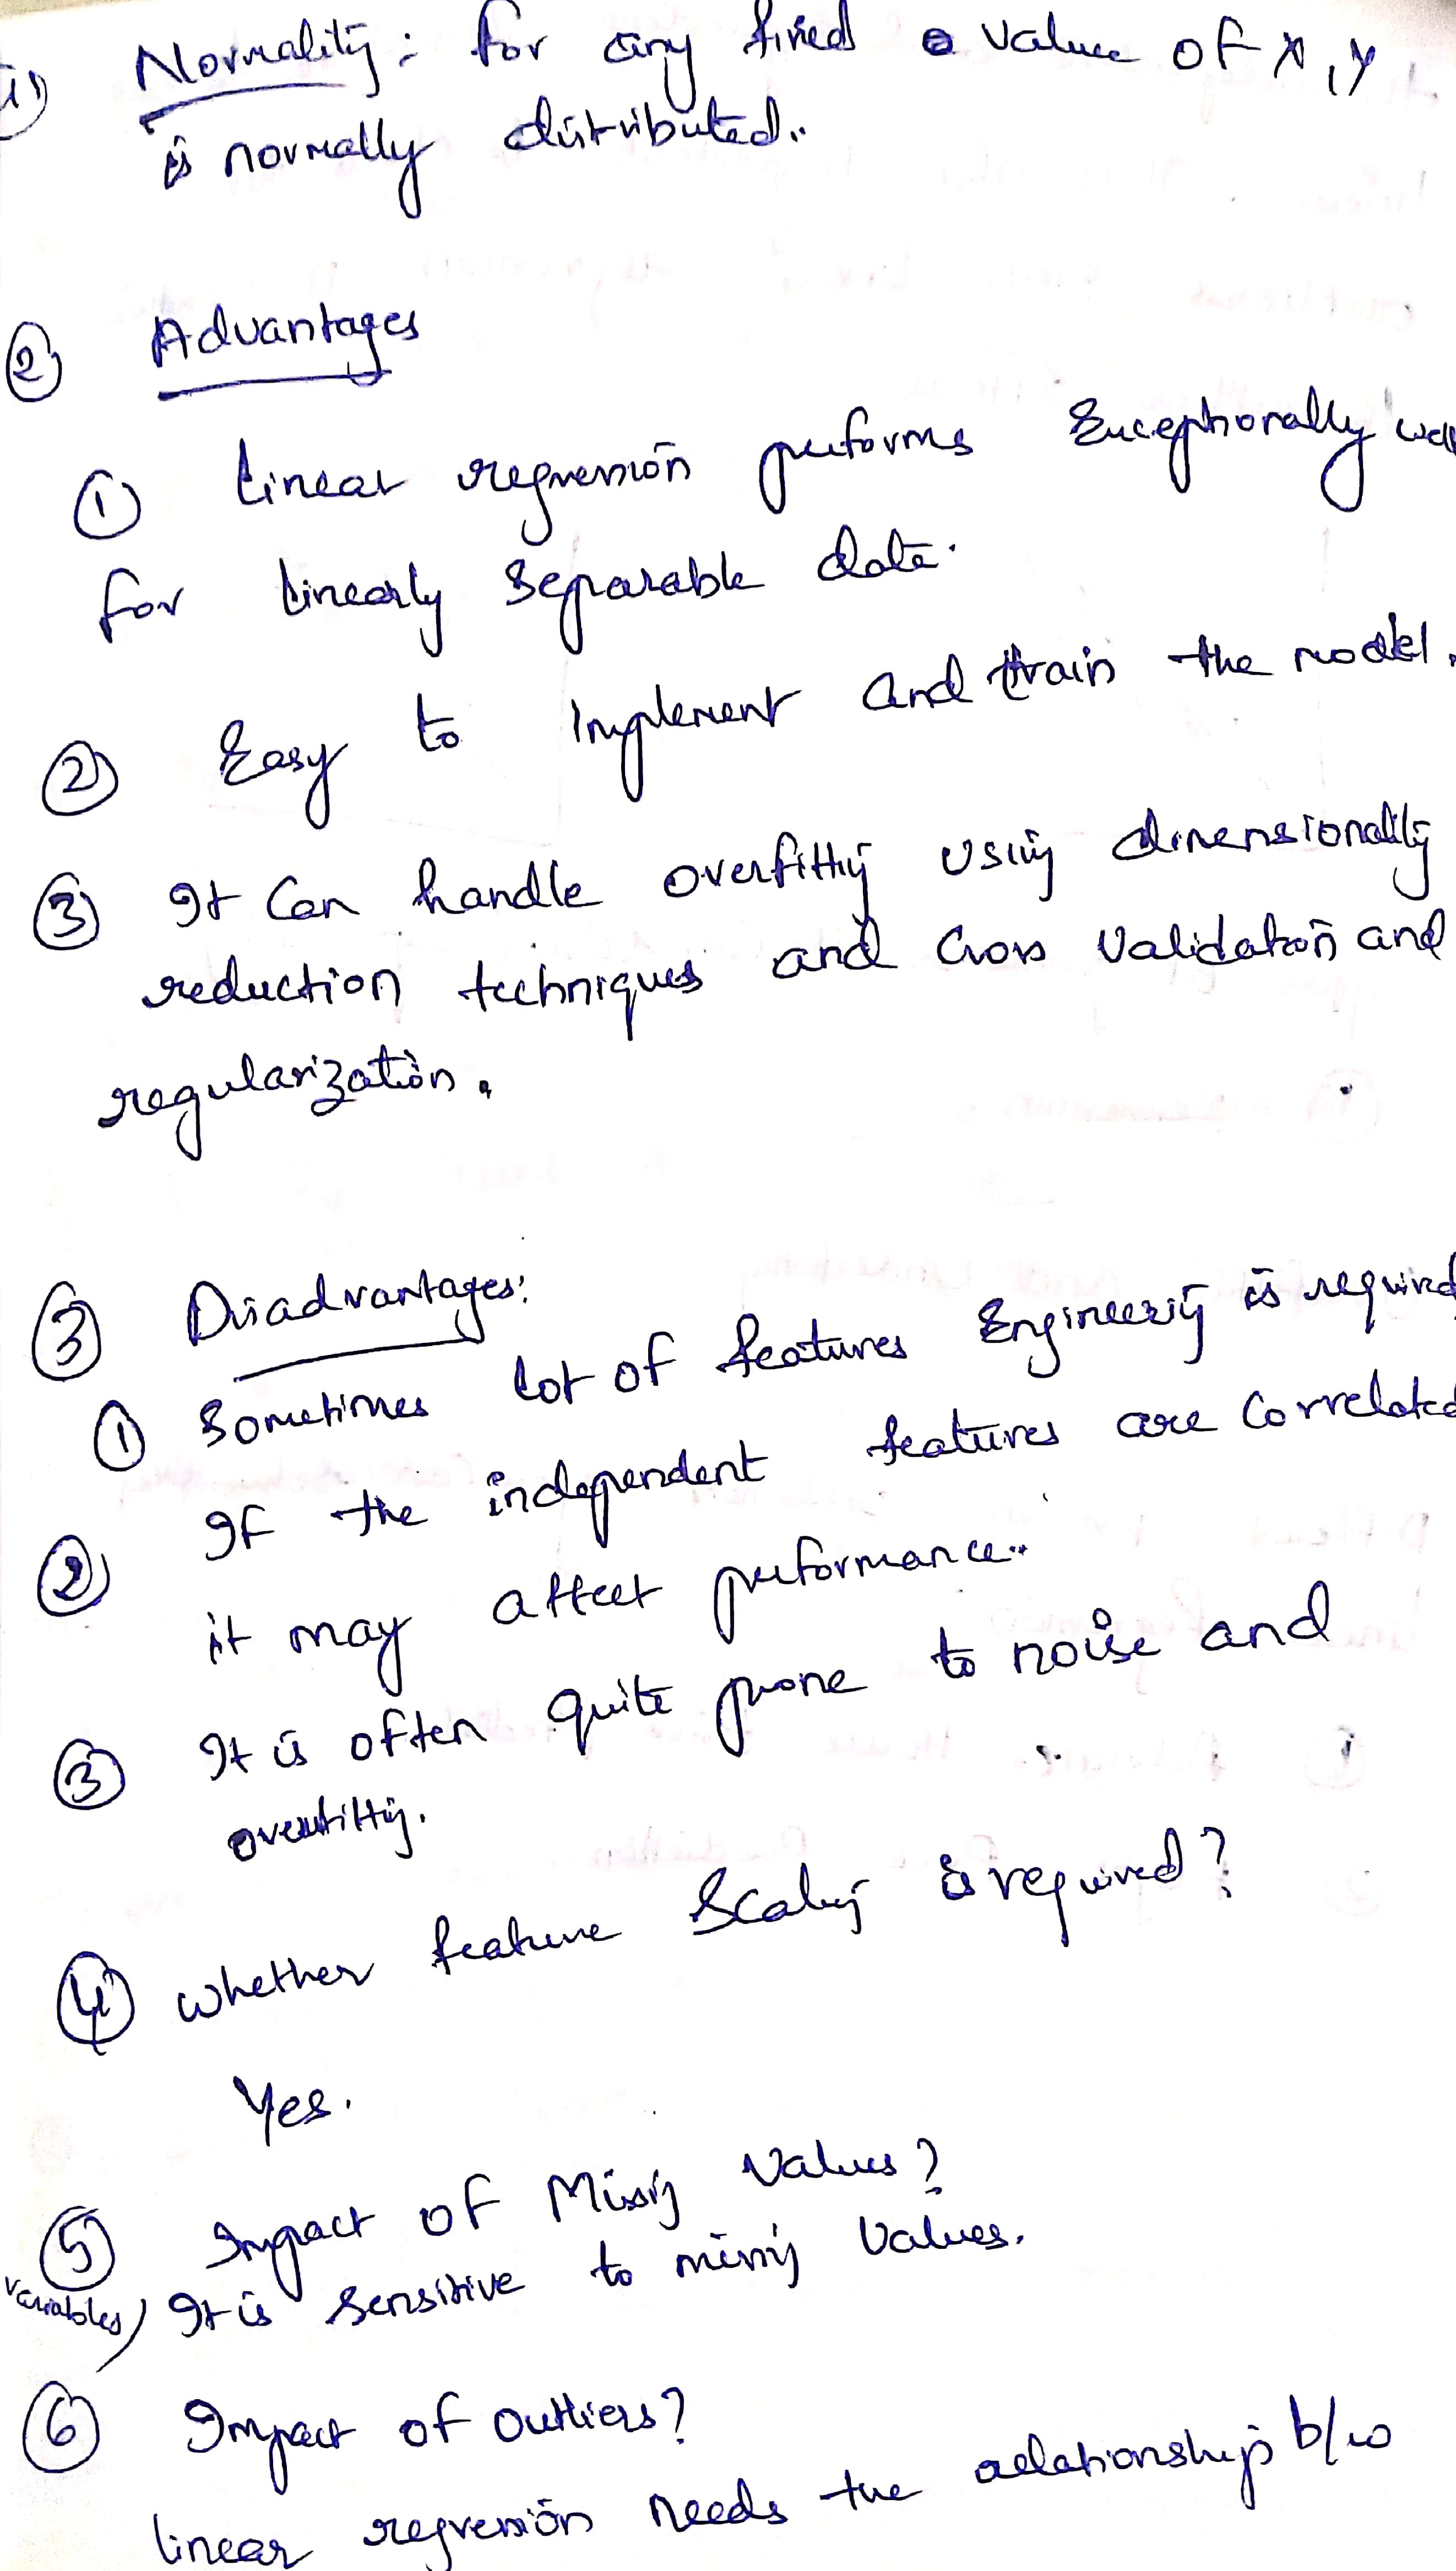 Normality: for any fixed value of x, y
is normally distributed..
② Advantages
① Linear regression performs Exceptionally well
for linearly separable data.
② Easy to implement and train the model.
③ It Can handle overfitting using dimensionality
reduction techniques and cross validation and
regularization.
③ Disadvantages:
① Sometimes lot of features Engineering is required
② If the independent features are Correlated
it may affect performance..
③ It is often quite prone to noise and
overfitting.
④ Whether feature Scaling is required?
Yes.
⑤ Impact of Missing Values?
It is sensitive to missing Values.
variables)
⑥ Impact of outliers?
linear regression needs the relationship b/w